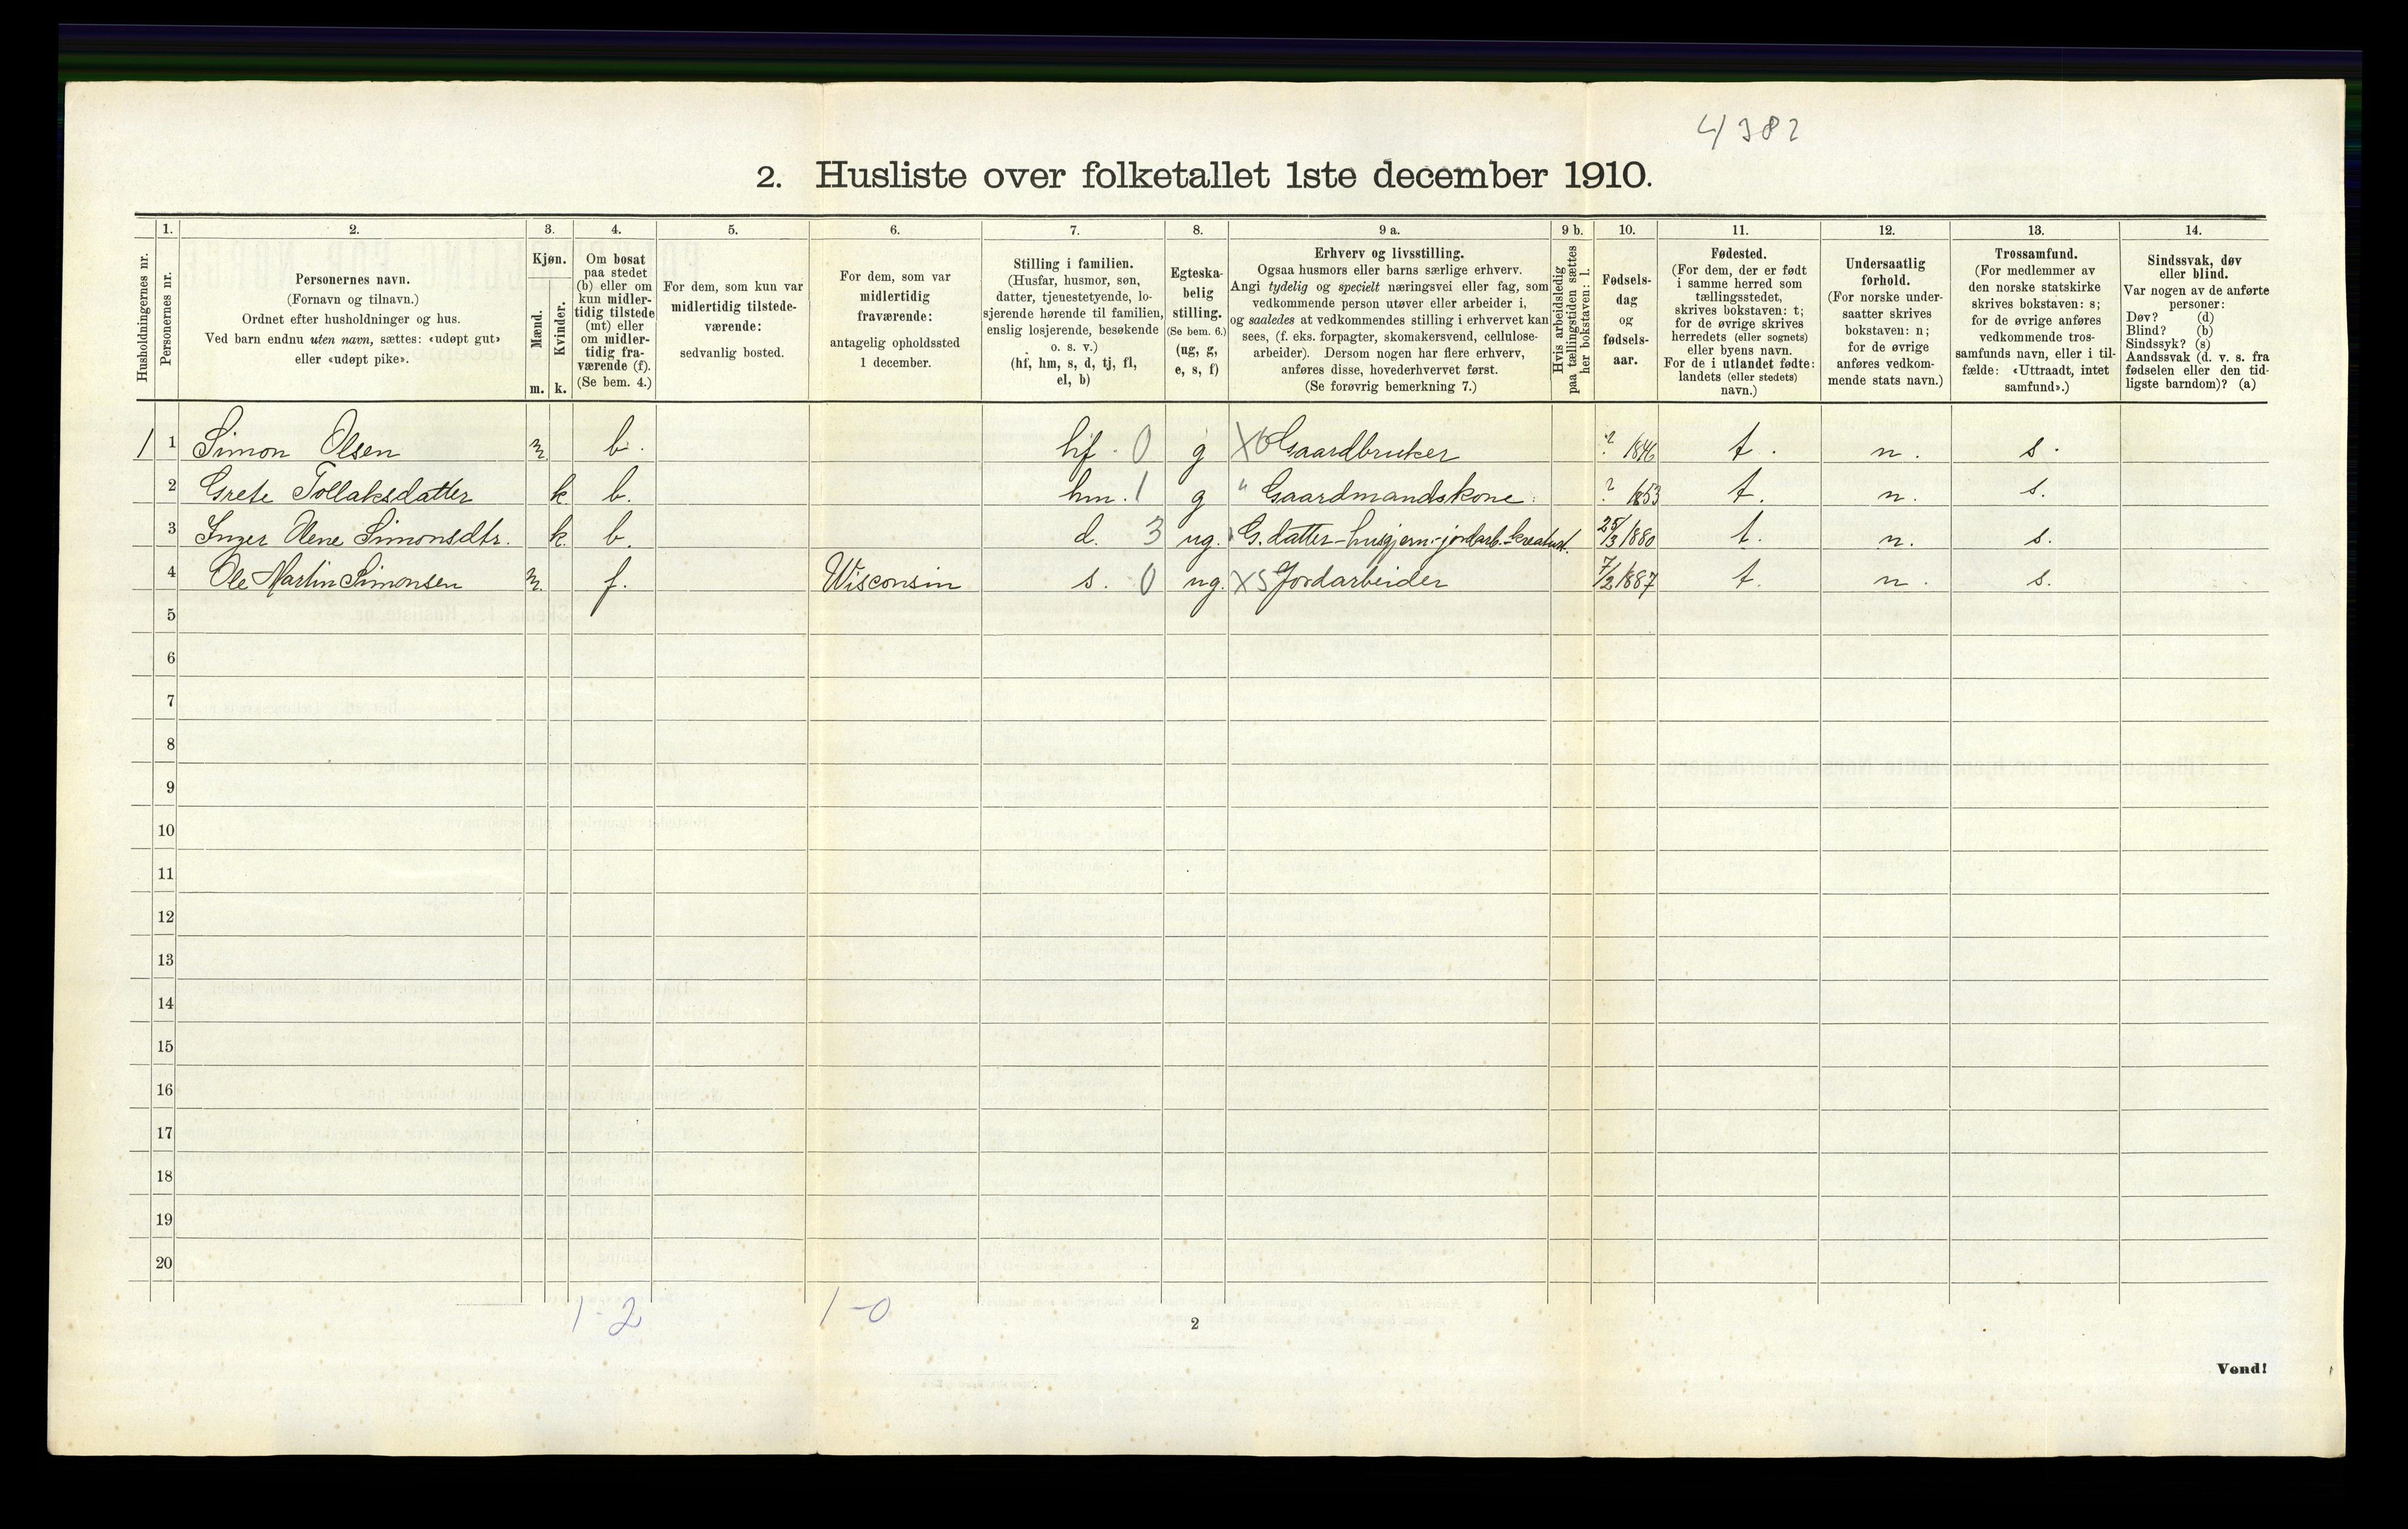 4/382
2. Husliste over folketallet 1ste december 1910.
Husholdningernes nr.
1.
Personernes nr.
2.
Personernes navn.
(Fornavn og tilnavn.)
Ordnet efter husholdninger og hus.
Ved barn endnu uten navn, sættes: «udøpt gut»
eller «udøpt pike».
3.
Kjøn.
Mænd.
m.
Kvinder.
k.
4.
Om bosat
paa stedet
(b) eller om
kun midler-
tidig tilstede
(mt) eller
om midler-
tidig fra-
værende (f).
(Se bem. 4.)
5.
For dem, som kun var
midlertidig tilstede-
værende:
sedvanlig bosted.
6.
For dem, som var
midlertidig
fraværende:
antagelig opholdssted
1 december.
7.
Stilling i familien.
(Husfar, husmor, søn,
datter, tjenestetyende, lo-
sjerende hørende til familien,
enslig losjerende, besøkende
o. s. v.)
(hf, hm, s, d, tj, fl,
el, b)
8.
Egteska-
belig
stilling.
(Se bem. 6.)
(ug, g,
e, s, f)
9 a.
Erhverv og livsstilling.
Ogsaa husmors eller barns særlige erhverv.
Angi tydelig og specielt næringsvei eller fag, som
vedkommende person utøver eller arbeider i,
og saaledes at vedkommendes stilling i erhvervet kan
sees, (f. eks. forpagter, skomakersvend, cellulose-
arbeider). Dersom nogen har flere erhverv,
anføres disse, hovederhvervet først.
(Se forøvrig bemerkning 7.)
9 b.
Hvis arbeidsledig
paa tællingstiden sættes
her bokstaven: l.
10.
Fødsels-
dag
og
fødsels-
aar.
11.
Fødested.
(For dem, der er født
i samme herred som
tællingsstedet,
skrives bokstaven: t;
for de øvrige skrives
herredets (eller sognets)
eller byens navn.
For de i utlandet fødte:
landets (eller stedets)
navn.)
12.
Undersaatlig
forhold.
(For norske under-
saatter skrives
bokstaven: n;
for de øvrige
anføres vedkom-
mende stats navn.)
13.
Trossamfund.
(For medlemmer av
den norske statskirke
skrives bokstaven: s;
for de øvrige anføres
vedkommende tros-
samfunds navn, eller i til-
fælde: «Uttraadt, intet
samfund».)
14.
Sindssvak, døv
eller blind.
Var nogen av de anførte
personer:
Døv? (d)
Blind? (b)
Sindssyk? (s)
Aandssvak (d. v. s. fra
fødselen eller den tid-
ligste barndom)? (a)
1 1 Simon Olsen m b. hf. 0 g X Gaardbruker ? 1846 t. n. s.
2 Grete Tollaksdatter k b. hm. 1 g " Gaardmandskone. ? 1853 t. n. s.
3 Inger Olene Simonsdtr. k. b. d. 3 ug. G. datter-husgjern.-jordarb.-kreaturst. 25/3 1880 t. n. s.
4 Ole Martin Simonsen m. f. Wisconsin s. 0 ug. X S Jordarbeider 7/2 1887 t. n. s.
5
6
7
8
9
10
11
12
13
14
15
16
17
18
19
20
1-2 1-0
2
Vend!